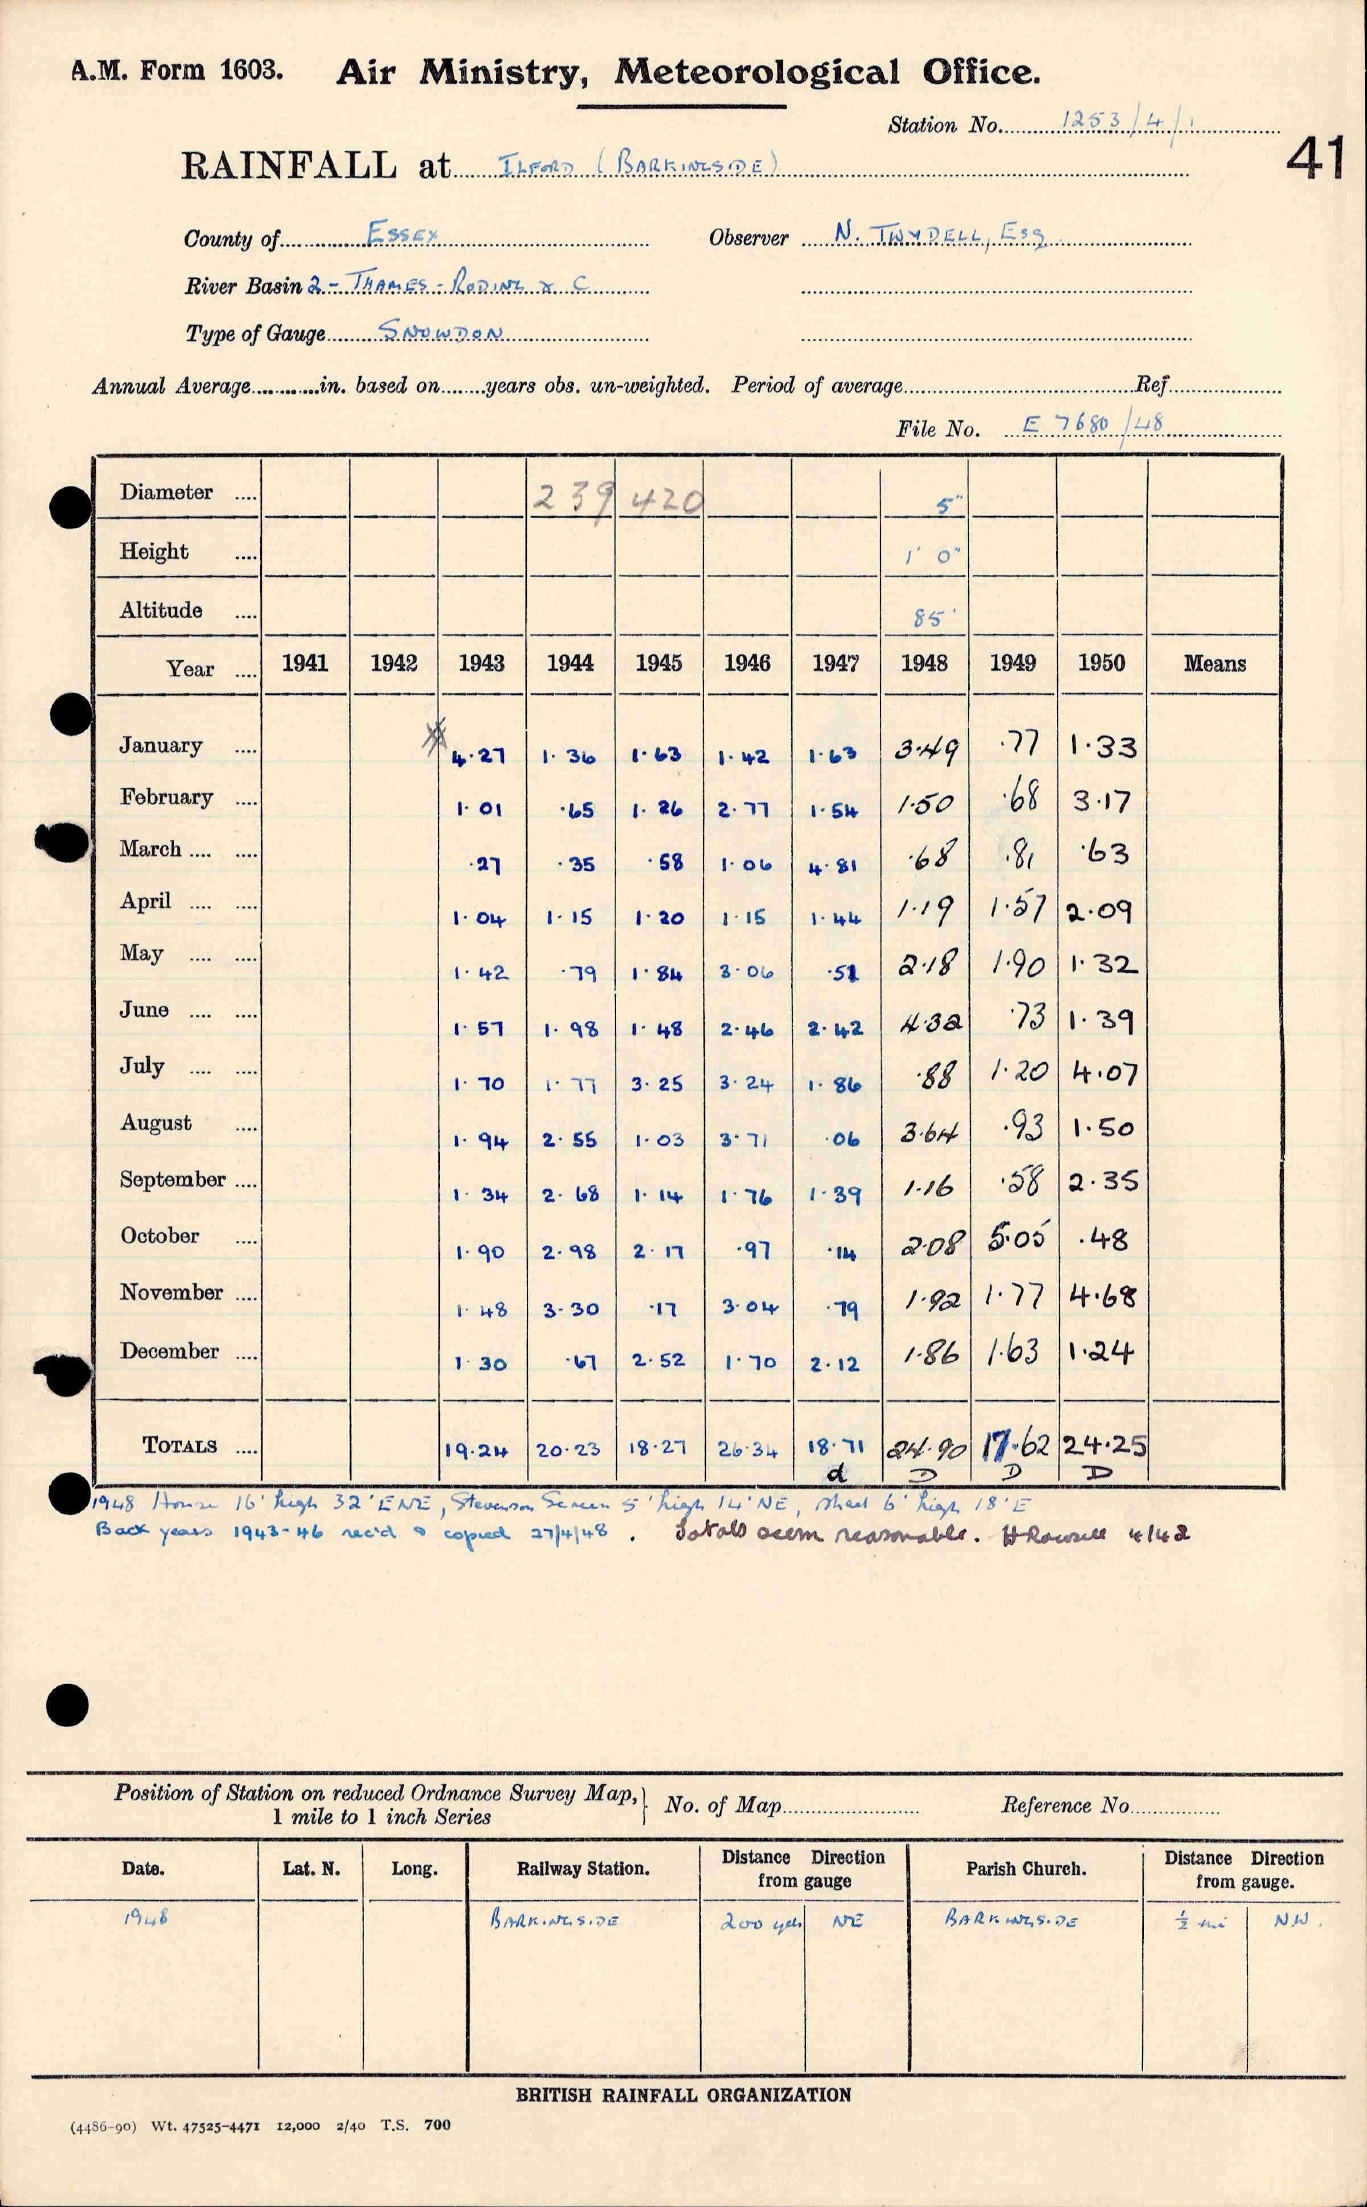 A.M. Form 1603. Air Ministry, Meteorological Office.
Station No. 1253/4/1
41
RAINFALL at Ilford (Barkingside)
County of Essex Observer N. Twydell, Esq
River Basin 2 - Thames - Roding & C
Type of Gauge Snowdon
Annual Average............in. based on........years obs. un-weighted. Period of average........Ref........
File No. E 7680/48
Diameter .... 239 420 5"
Height .... 1' 0"
Altitude .... 85'
Year .... 1941 1942 1943 1944 1945 1946 1947 1948 1949 1950 Means
January .... 4.27 1.36 1.63 1.42 1.63 3.49 .77 1.33
February .... 1.01 .65 1.26 2.77 1.54 1.50 .68 3.17
March .... .... .27 .35 .58 1.06 4.81 .68 .81 .63
April .... .... 1.04 1.15 1.20 1.15 1.44 1.19 1.57 2.09
May .... .... 1.42 .79 1.84 3.06 .51 2.18 1.90 1.32
June .... .... 1.57 1.98 1.48 2.46 2.42 4.32 .73 1.39
July .... .... 1.70 1.77 3.25 3.24 1.86 .88 1.20 4.07
August .... 1.94 2.55 1.03 3.71 .06 3.64 .93 1.50
September .... 1.34 2.68 1.14 1.76 1.39 1.16 .58 2.35
October .... 1.90 2.98 2.17 .97 .14 2.08 5.05 .48
November .... 1.48 3.30 .17 3.04 .79 1.92 1.77 4.68
December .... 1.30 .67 2.52 1.70 2.12 1.86 1.63 1.24
Totals .... 19.24 20.23 18.27 26.34 18.71 24.90 17.62 24.25
d D D D
1948 House 16' high 32' ENE, Stevenson Screen 5' high 14' NE, shed 6' high 18' E
Back years 1943-46 rec'd & copied 27/4/48 . Totals seem reasonable.
Position of Station on reduced Ordnance Survey Map, No. of Map........ Reference No........
1 mile to 1 inch Series
Date. Lat. N. Long. Railway Station. Distance Direction from gauge Parish Church. Distance Direction from gauge.
1948 Barkingside 200 yds NE Barkingside ½ mi NW.
BRITISH RAINFALL ORGANIZATION
(4486-90) Wt. 47525-4471 12,000 2/40 T.S. 700